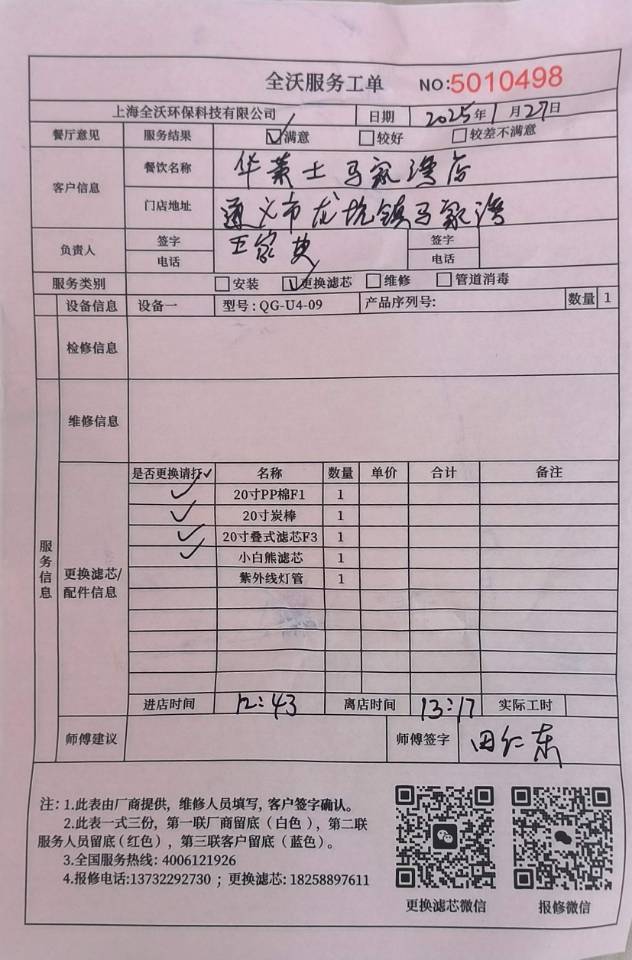 全沃服务工单 NO:5010498
上海全沃环保科技有限公司 日期 2025年1月27日
餐厅意见 服务结果 ☑满意 □较好 □较差不满意
客户信息 餐饮名称 华莱士马家湾店
门店地址 遵义市龙坑镇马家湾
负责人 签字 签字
电话 电话
服务类别 □安装 ☑更换滤芯 □维修 □管道消毒
设备信息 设备一 型号:QG-U4-09 产品序列号: 数量 1
检修信息
服务信息
维修信息
更换滤芯/配件信息
是否更换请打✓ 名称 数量 单价 合计 备注
✓ 20寸PP棉F1 1
✓ 20寸炭棒 1
✓ 20寸叠式滤芯F3 1
✓ 小白熊滤芯 1
紫外线灯管 1
进店时间 12:43 离店时间 13:17 实际工时
师傅建议 师傅签字 田仁东
注:1.此表由厂商提供,维修人员填写,客户签字确认。
2.此表一式三份,第一联厂商留底(白色),第二联
服务人员留底(红色),第三联客户留底(蓝色)。
3.全国服务热线: 4006121926
4.报修电话:13732292730 ; 更换滤芯: 18258897611
更换滤芯微信 报修微信